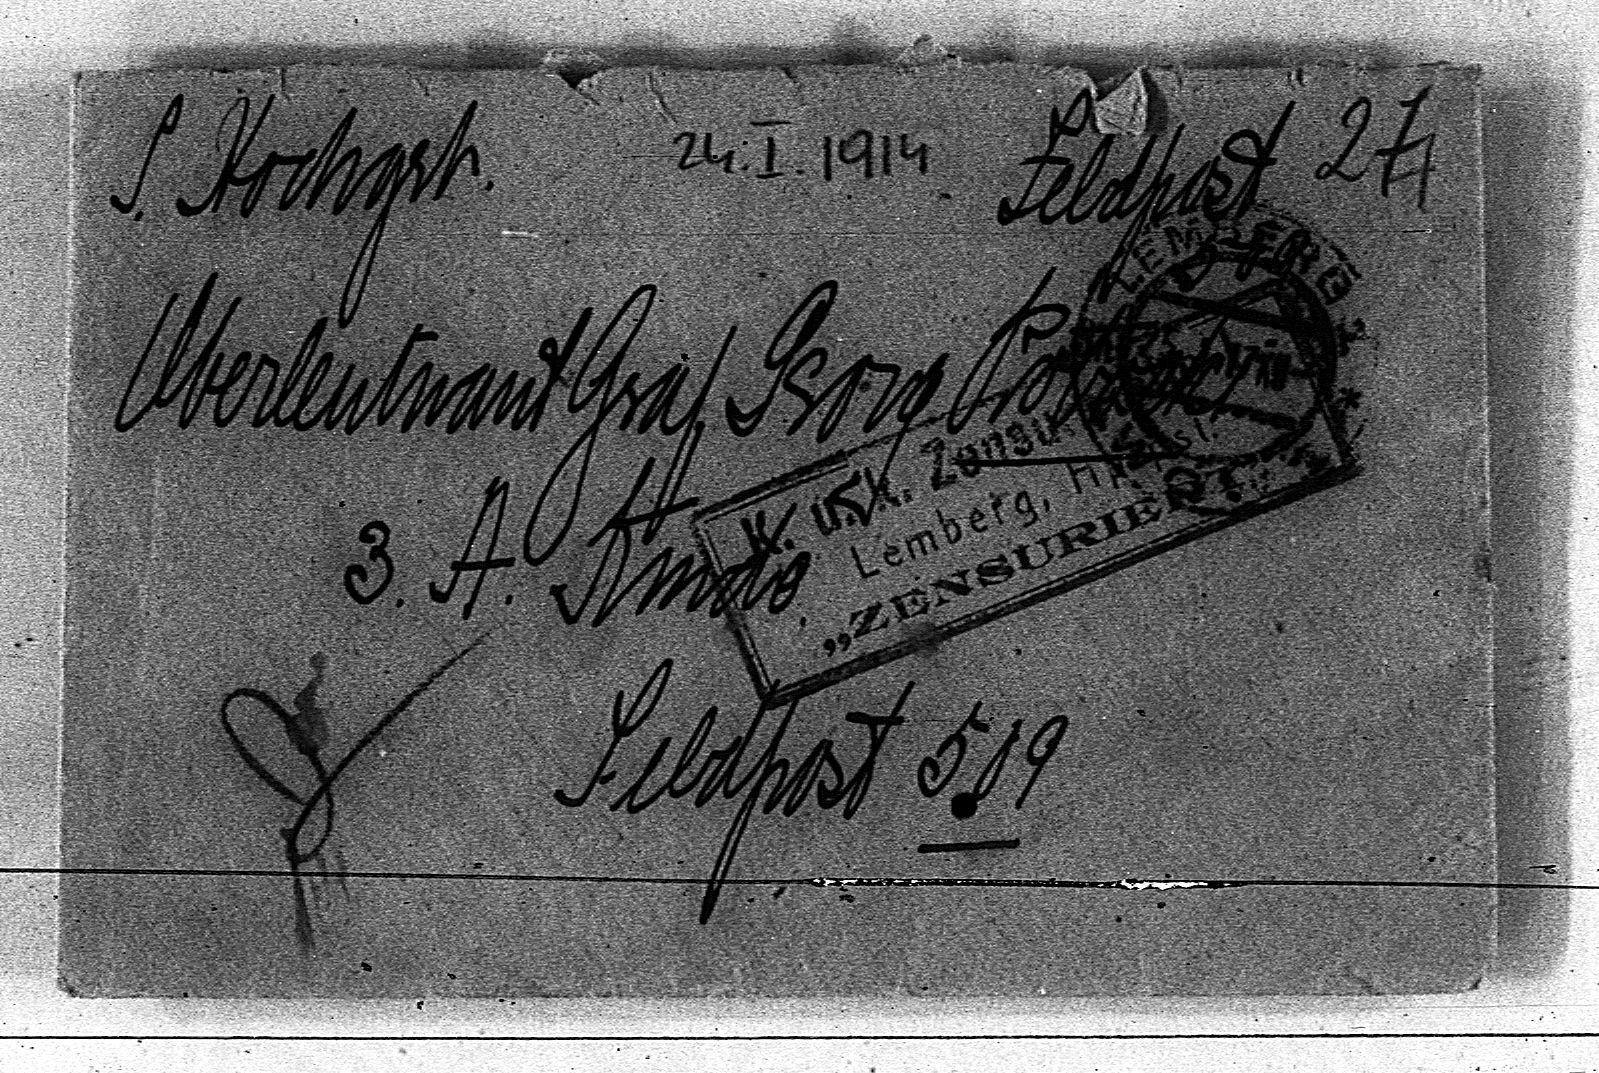 S. Hochgb. 24.I.1914 Feldpost 27/1
Oberleutnant Graf Georg
3. A. Kmdo.
Feldpost 519
LEMBERG
K. u. k. Zensur
Lemberg,
„ZENSURIERT"